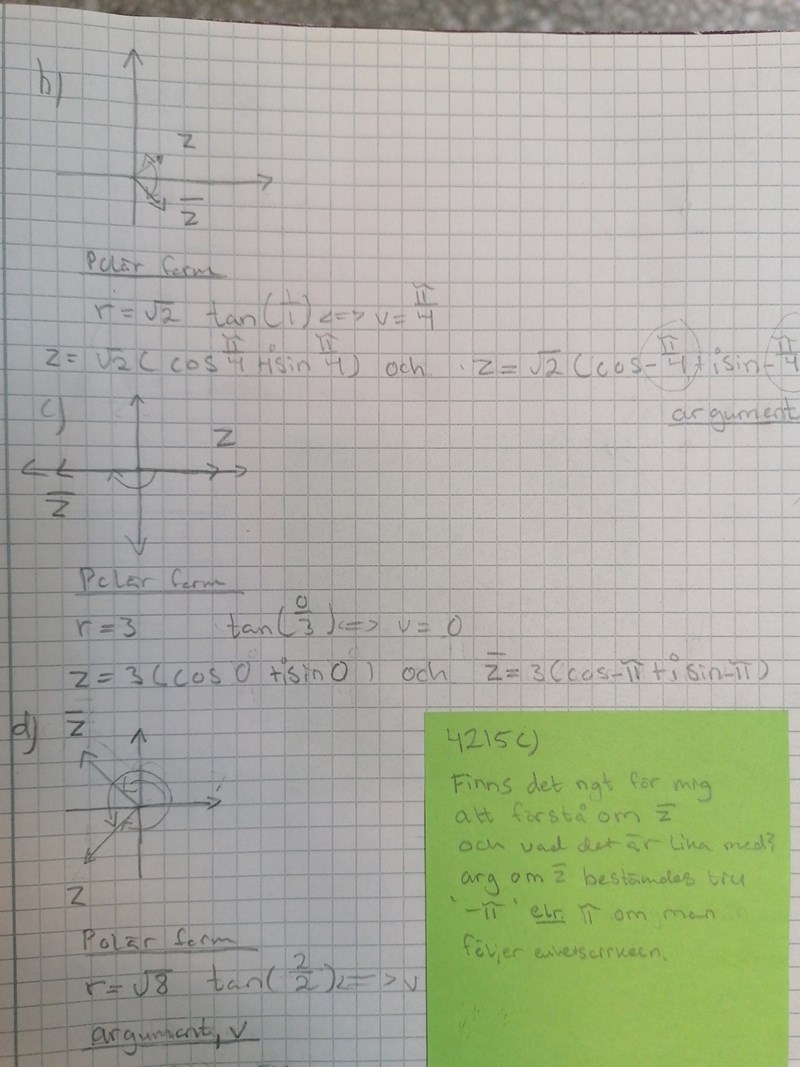 b)
z
z̅
Polär form
r = √2 tan(1/1) <=> v = π/4
z = √2 ( cos π/4 + i sin π/4 ) och z = √2 (cos -π/4 + i sin -π/4
argument
c)
z
z̅
Polär form
r = 3 tan(0/3) <=> v = 0
z = 3 (cos 0 + i sin 0) och z̅ = 3 (cos -π + i sin -π)
d) z̅
z
Polär form
r = √8 tan(2/2) <=> v
argument, v
4215 c)
Finns det ngt för mig
att förstå om z̅
och vad det är lika med?
arg om z̅ bestämdes till
'-π' elr. π om man
följer enhetscirkeln.